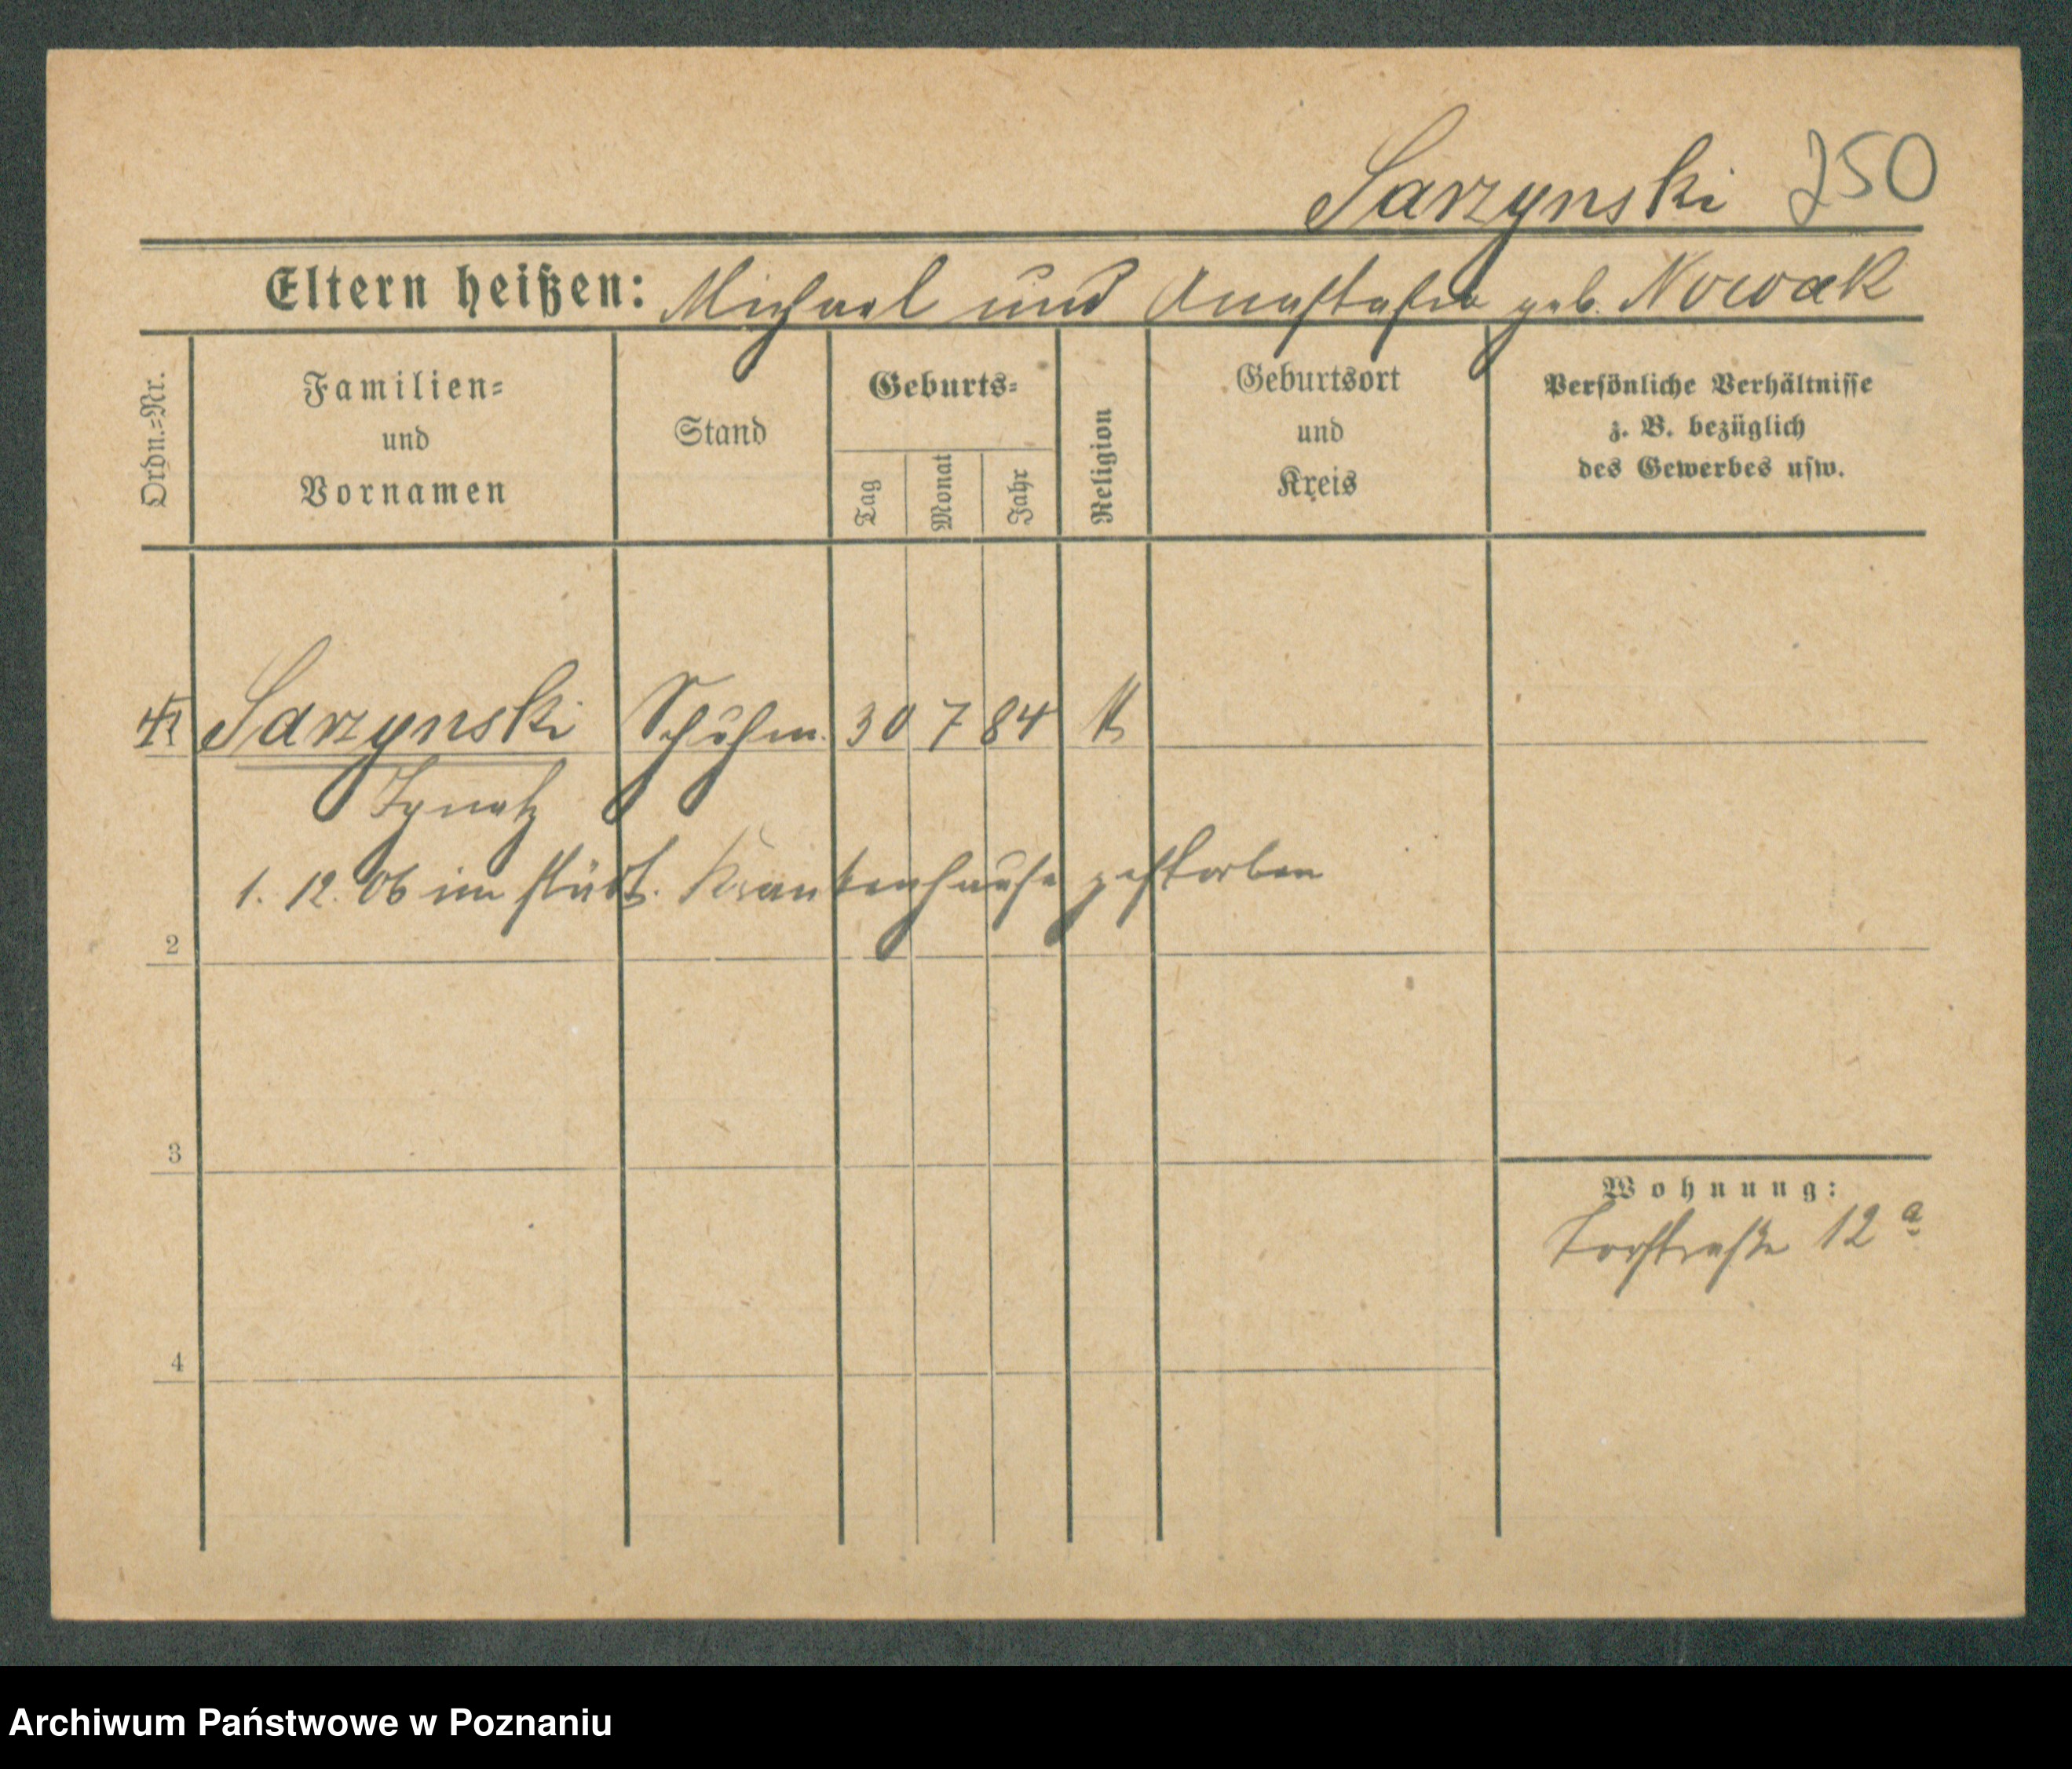 Sarzynski 250
Eltern heißen: Michael und Anastasia geb. Nowak
Ordn.-Nr.
Familien-
und
Vornamen
Stand
Geburts-
Tag
Monat
Jahr
Religion
Geburtsort
und
Kreis
Persönliche Verhältnisse
z. B. bezüglich
des Gewerbes usw.
Sarzynski Schuhm. 30 7 84 k
Ignatz
1. 12. 06 im städt. Krankenhause gestorben
2
3
Wohnung:
Torstraße 12 a
4
Archiwum Państwowe w Poznaniu